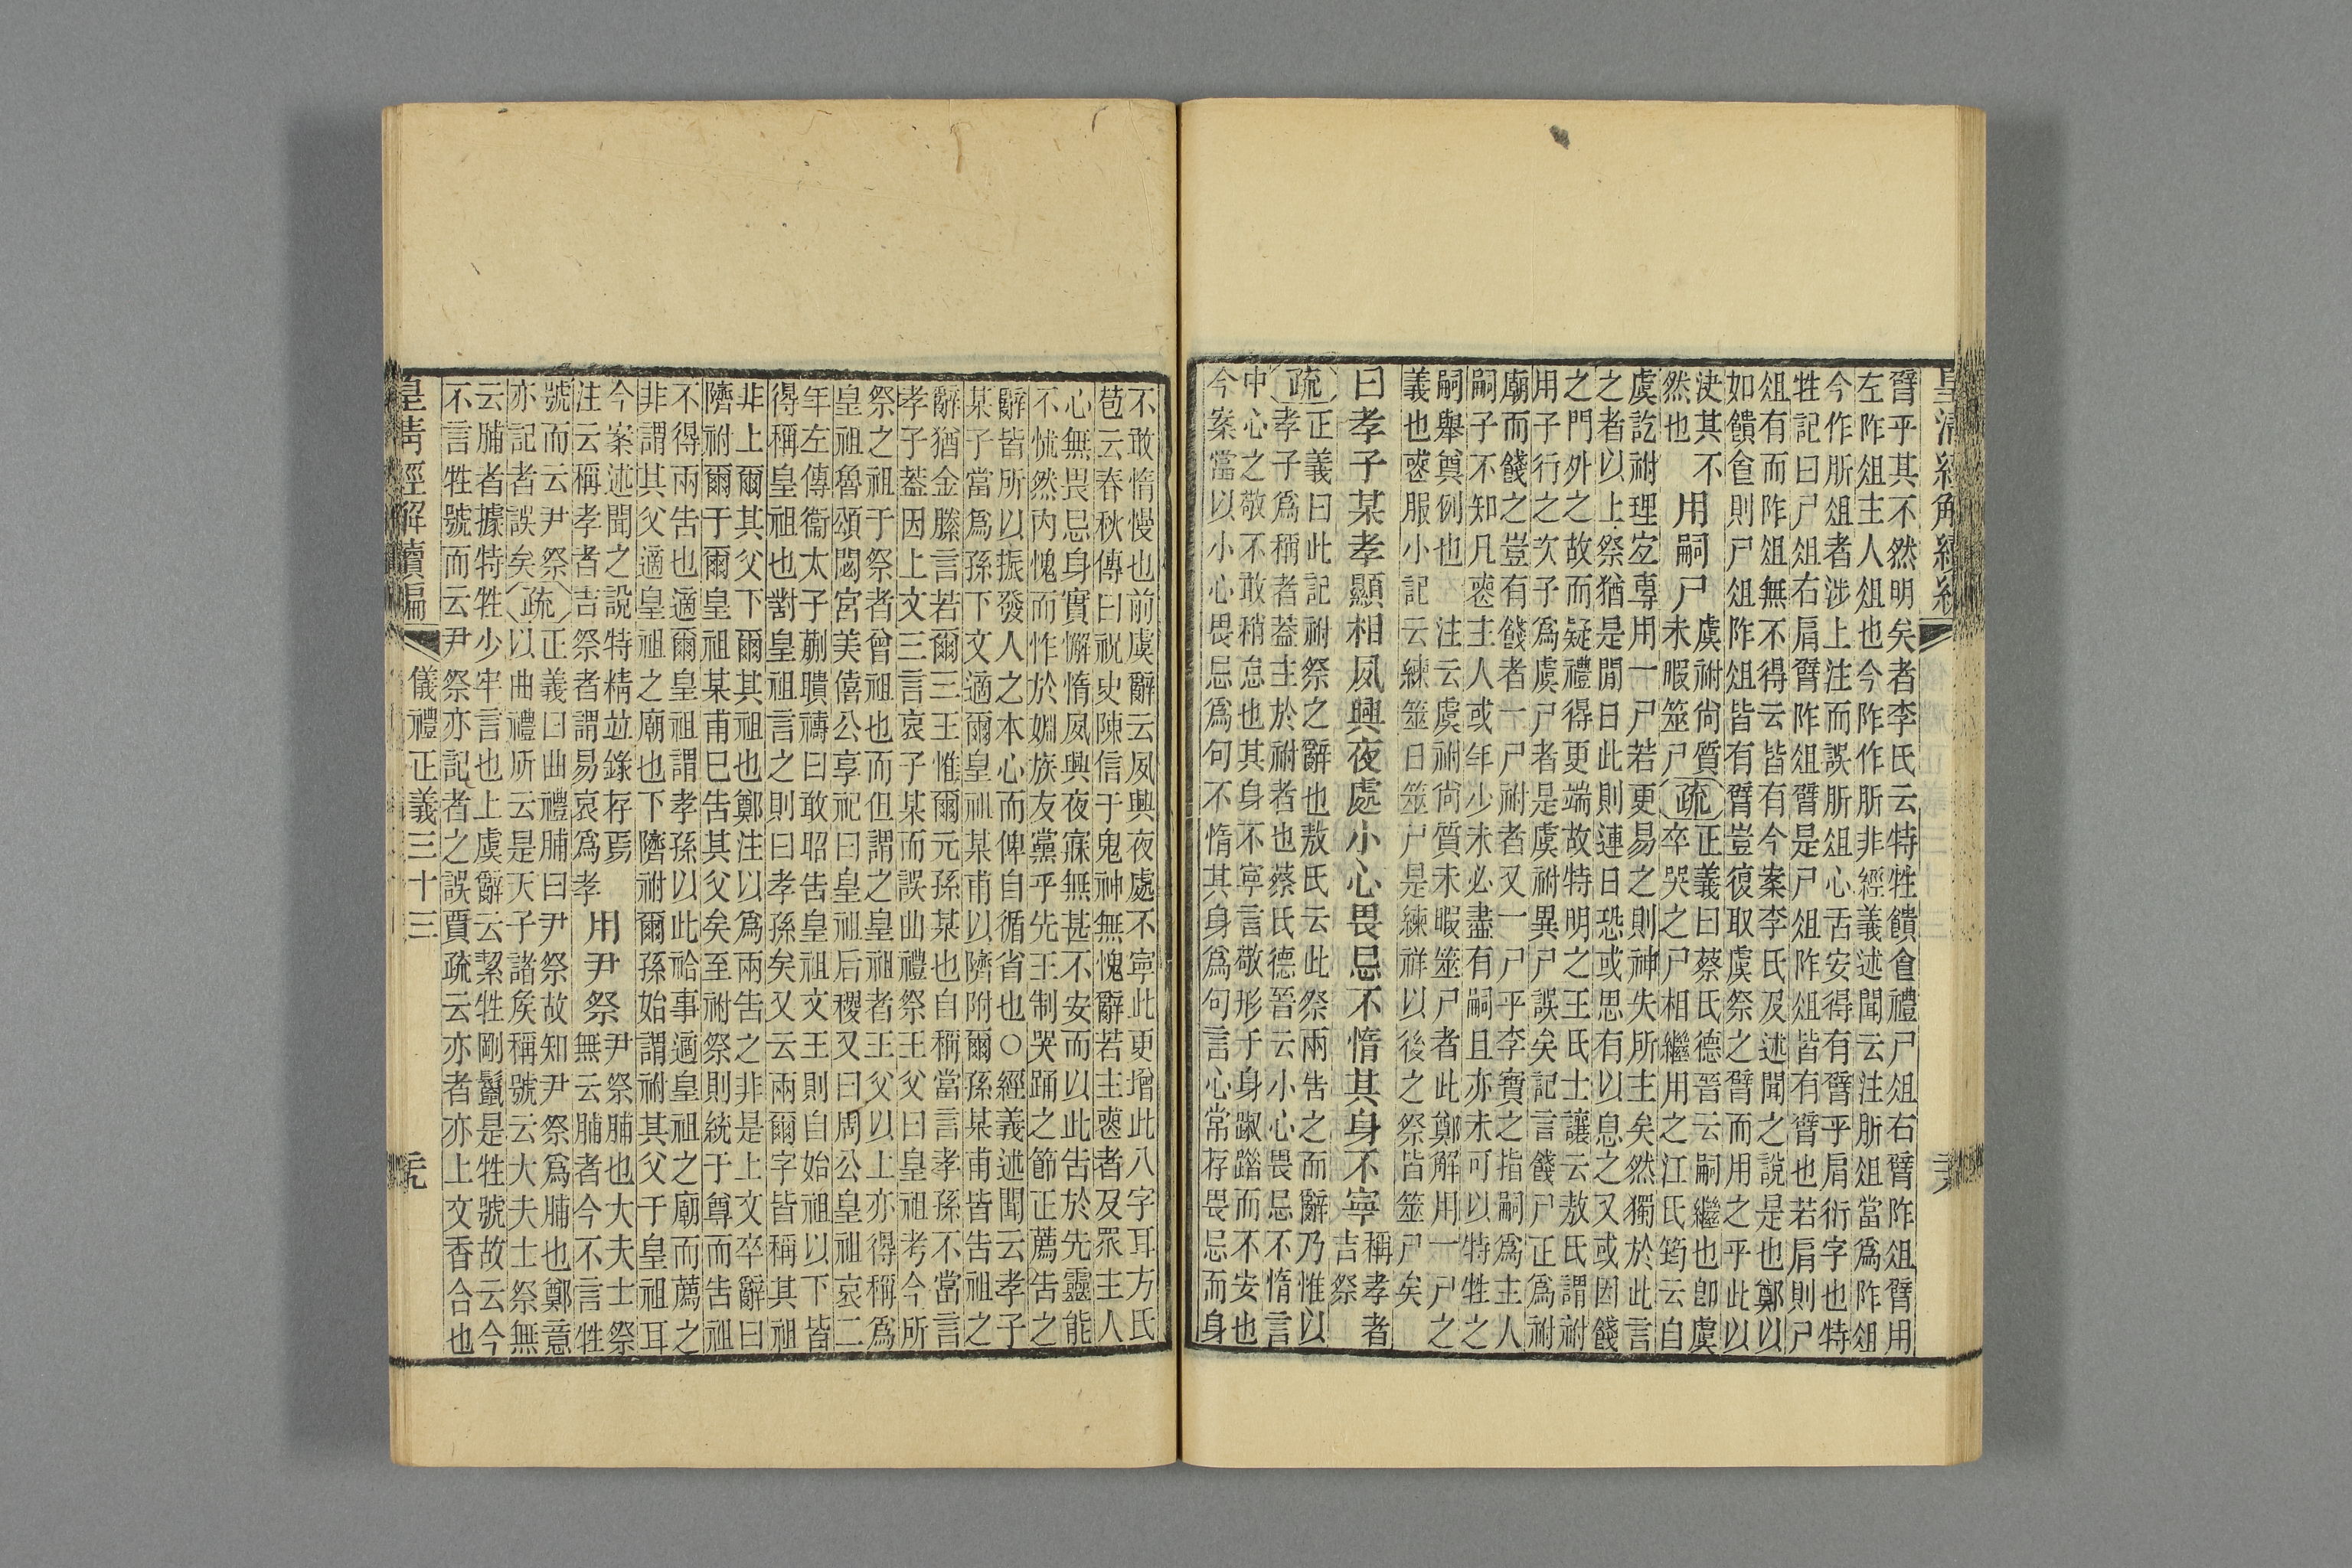 皇清經解續編
臂乎其不然明矣者李氏云特牲饋食禮尸俎右臂阼俎臂用
左阼俎主人俎也今阼作肵非經義述聞云注肵俎當爲阼俎
今作肵俎者涉上注而誤肵俎心舌安得有臂乎肩衍字也特
牲記曰尸俎右肩臂阼俎臂是尸俎阼俎皆有臂也若肩則尸
俎有而阼俎無不得云皆有今案李氏及述聞之說是也鄭以
如饋食則尸俎阼俎皆有臂豈復取虞祭之臂而用之乎此以
決其不
然也
用嗣尸
虞祔尙質
未暇筮尸
疏
正義曰蔡氏德晉云嗣繼也卽虞
卒哭之尸相繼用之江氏筠云自
虞訖祔理宐專用一尸若更易之則神失所主矣然獨於此言
之者以上祭猶是閒日此則連日恐或思有以息之又或因餞
之門外之故而疑禮得更端故特明之王氏士讓云敖氏謂祔
用子行之次子爲虞尸者是虞祔異尸誤矣記言餞尸正爲祔
廟而餞之豈有餞者一尸祔者又一尸乎李寶之指嗣爲主人
嗣子不知凡喪主人或年少未必盡有嗣且亦未可以特牲之
嗣舉奠例也 注云虞祔尙質未暇筮尸者此鄭解用一尸之
義也喪服小記云練筮日筮尸是練祥以後之祭皆筮尸矣
曰孝子某孝顯相夙興夜處小心畏忌不惰其身不寧
稱孝者
吉祭
疏
正義曰此記祔祭之辭也敖氏云此祭兩告之而辭乃惟以
孝子爲稱者葢主於祔者也蔡氏德晉云小心畏忌不惰言
中心之敬不敢稍怠也其身不寧言敬形于身踧踖而不安也
今案當以小心畏忌爲句不惰其身爲句言心常存畏忌而身
不敢惰慢也前虞辭云夙興夜處不寧此更增此八字耳方氏
苞云春秋傳曰祝史陳信于鬼神無愧辭若主喪者及眾主人
心無畏忌身實懈惰夙興夜寐無甚不安而以此告於先靈能
不怵然內愧而怍於婣族友黨乎先王制哭踊之節正薦告之
辭皆所以振發人之本心而俾自循省也○經義述聞云孝子
某子當爲孫下文適爾皇祖某甫以隮附爾孫某甫皆告祖之
辭猶金縢言若爾三王惟爾元孫某也自稱當言孝孫不當言
孝子葢因上文三言哀子某而誤曲禮祭王父曰皇祖考今所
祭之祖于祭者曾祖也而但謂之皇祖者王父以上亦得稱爲
皇祖魯頌閟宮美僖公享祀曰皇祖后稷又曰周公皇祖哀二
年左傳衞太子蒯聵禱曰敢昭告皇祖文王則自始祖以下皆
得稱皇祖也對皇祖言之則曰孝孫矣又云兩爾字皆稱其祖
非上爾其父下爾其祖也鄭注以爲兩告之非是上文卒辭曰
隮祔爾于爾皇祖某甫巳告其父矣至祔祭則統于尊而告祖
不得兩告也適爾皇祖謂孝孫以此祫事適皇祖之廟而薦之
非謂其父適皇祖之廟也下隮祔爾孫始謂祔其父于皇祖耳
今案述聞之說特精竝錄存焉
注云稱孝者吉祭者謂易哀爲孝
用尹祭
尹祭脯也大夫士祭
無云脯者今不言牲
號而云尹祭
亦記者誤矣
疏
正義曰曲禮脯曰尹祭故知尹祭爲脯也鄭意
以曲禮所云是天子諸矦稱號云大夫士祭無
云脯者據特牲少牢言也上虞辭云絜牲剛鬣是牲號故云今
不言牲號而云尹祭亦記者之誤賈疏云亦者亦上文香合也
皇清經解續編
儀禮正義三十三